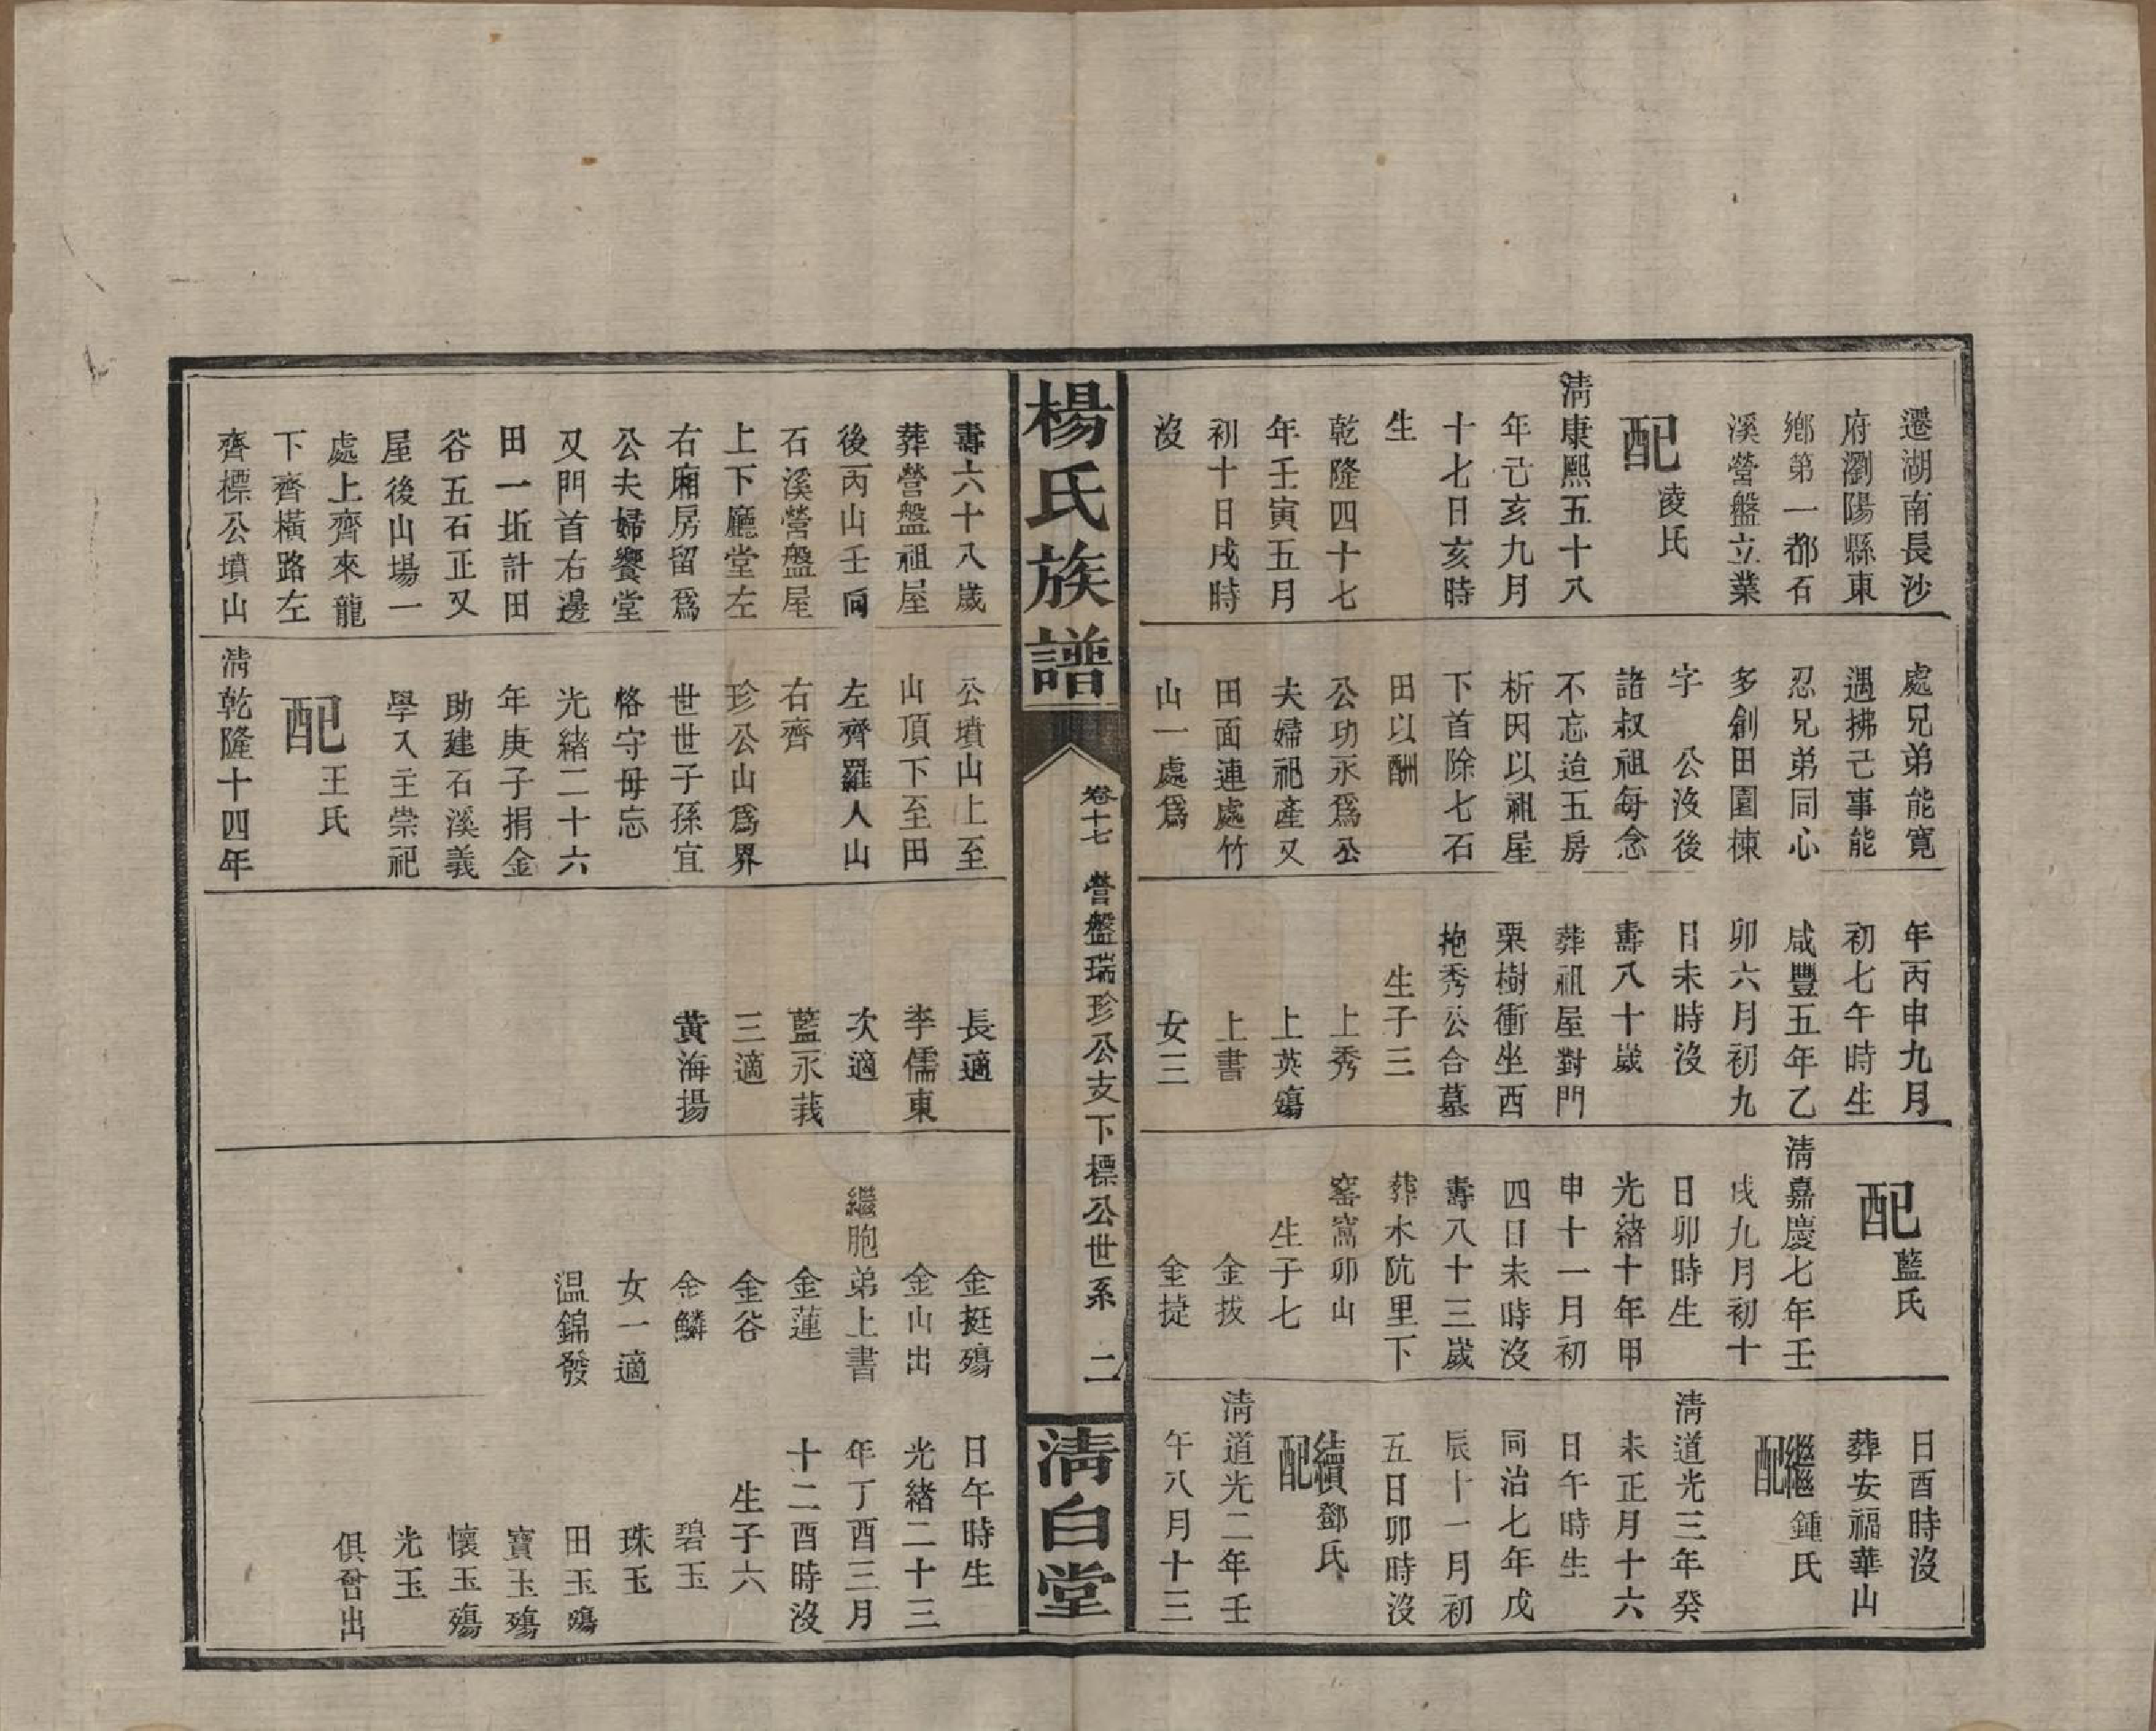 遷湖南長沙
府瀏陽縣東
鄉第一都石
溪營盤立業
配凌氏
淸康熙五十八
年己亥九月
十七日亥時
生
乾隆四十七
年壬寅五月
初十日戌時
沒
處兄弟能寬
遇拂己事能
忍兄弟同心
多創田園棟
字 公沒後
諸叔祖每念
不忘迨五房
析因以祖屋
下首除七石
田以酬
公功永爲公
夫婦祀產又
田面連處竹
山一處爲
年丙申九月
初七午時生
咸豐五年乙
卯六月初九
日未時沒
壽八十歲
葬祖屋對門
栗樹衝坐西
抱秀公合墓
生子三
上秀
上英殤
上書
女三
配藍氏
淸嘉慶七年壬
戌九月初十
日卯時生
光緒十年甲
申十一月初
四日未時沒
壽八十三歲
葬水阬里下
窰窩卯山
生子七
金拔
金捷
日酉時沒
葬安福華山
繼配鍾氏
淸道光三年癸
未正月十六
日午時生
同治七年戊
辰十一月初
五日卯時沒
續配鄧氏
淸道光二年壬
午八月十三
楊氏族譜
卷十七 營盤瑞珍公支下標公世系 二
淸白堂
壽六十八歲
葬營盤祖屋
後丙山壬向
石溪營盤屋
上下廳堂左
右廂房留爲
公夫婦饗堂
又門首右邊
田一坵計田
谷五石正又
屋後山場一
處上齊來龍
下齊橫路左
齊標公墳山
公墳山上至
山頂下至田
左齊羅人山
右齊
珍公山爲界
世世子孫宜
恪守毋忘
光緒二十六
年庚子捐金
助建石溪義
學入主崇祀
配王氏
淸乾隆十四年
長適
李儒東
次適
藍永莪
三適
黃海揚
金挺殤
金山出
繼胞弟上書
金蓮
金谷
金鱗
女一適
温錦發
日午時生
光緒二十三
年丁酉三月
十二酉時沒
生子六
碧玉
珠玉
田玉殤
寶玉殤
懷玉殤
光玉
俱曾出